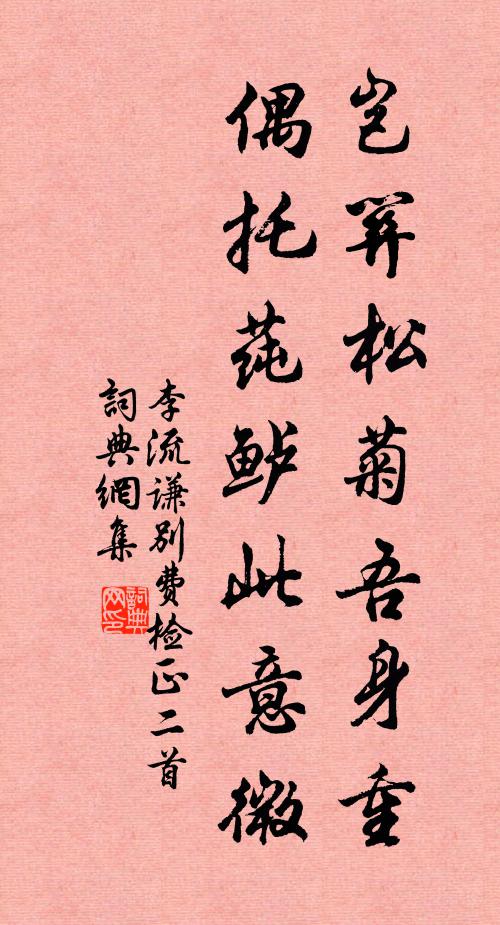 岂算松菊吾身重
偶托莼鲈此意微
李流谦别费检正二首
詞典網集
詞典网印